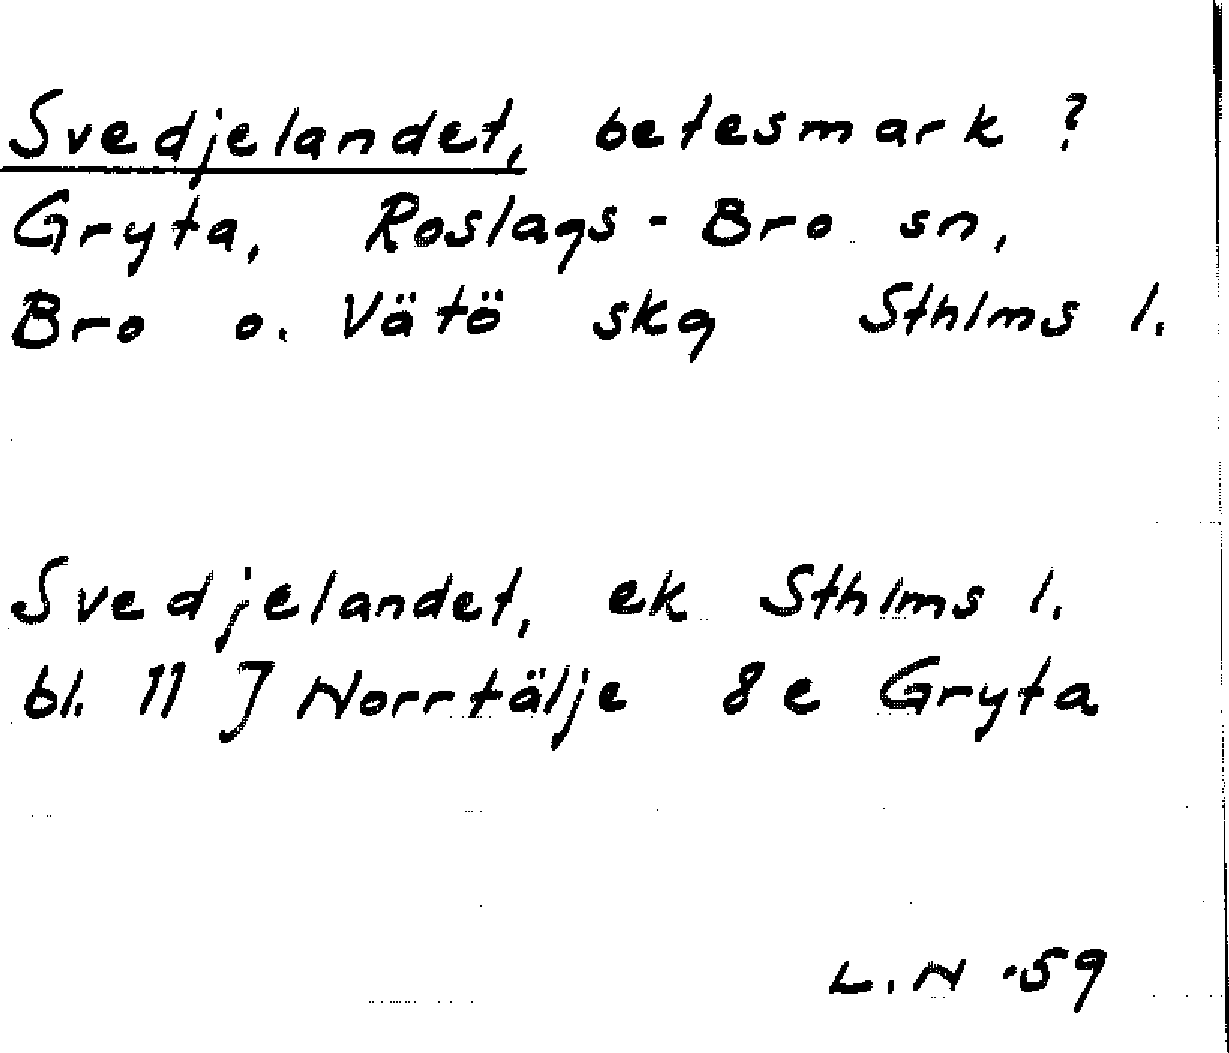 Svedjelandet, betesmark ?
Gryta, Roslags-Bro sn,
Bro o. Vätö skg Sthlms l.
Svedjelandet, ek Sthlms l.
bl. 11 J Norrtälje 8e Gryta
L.N -59